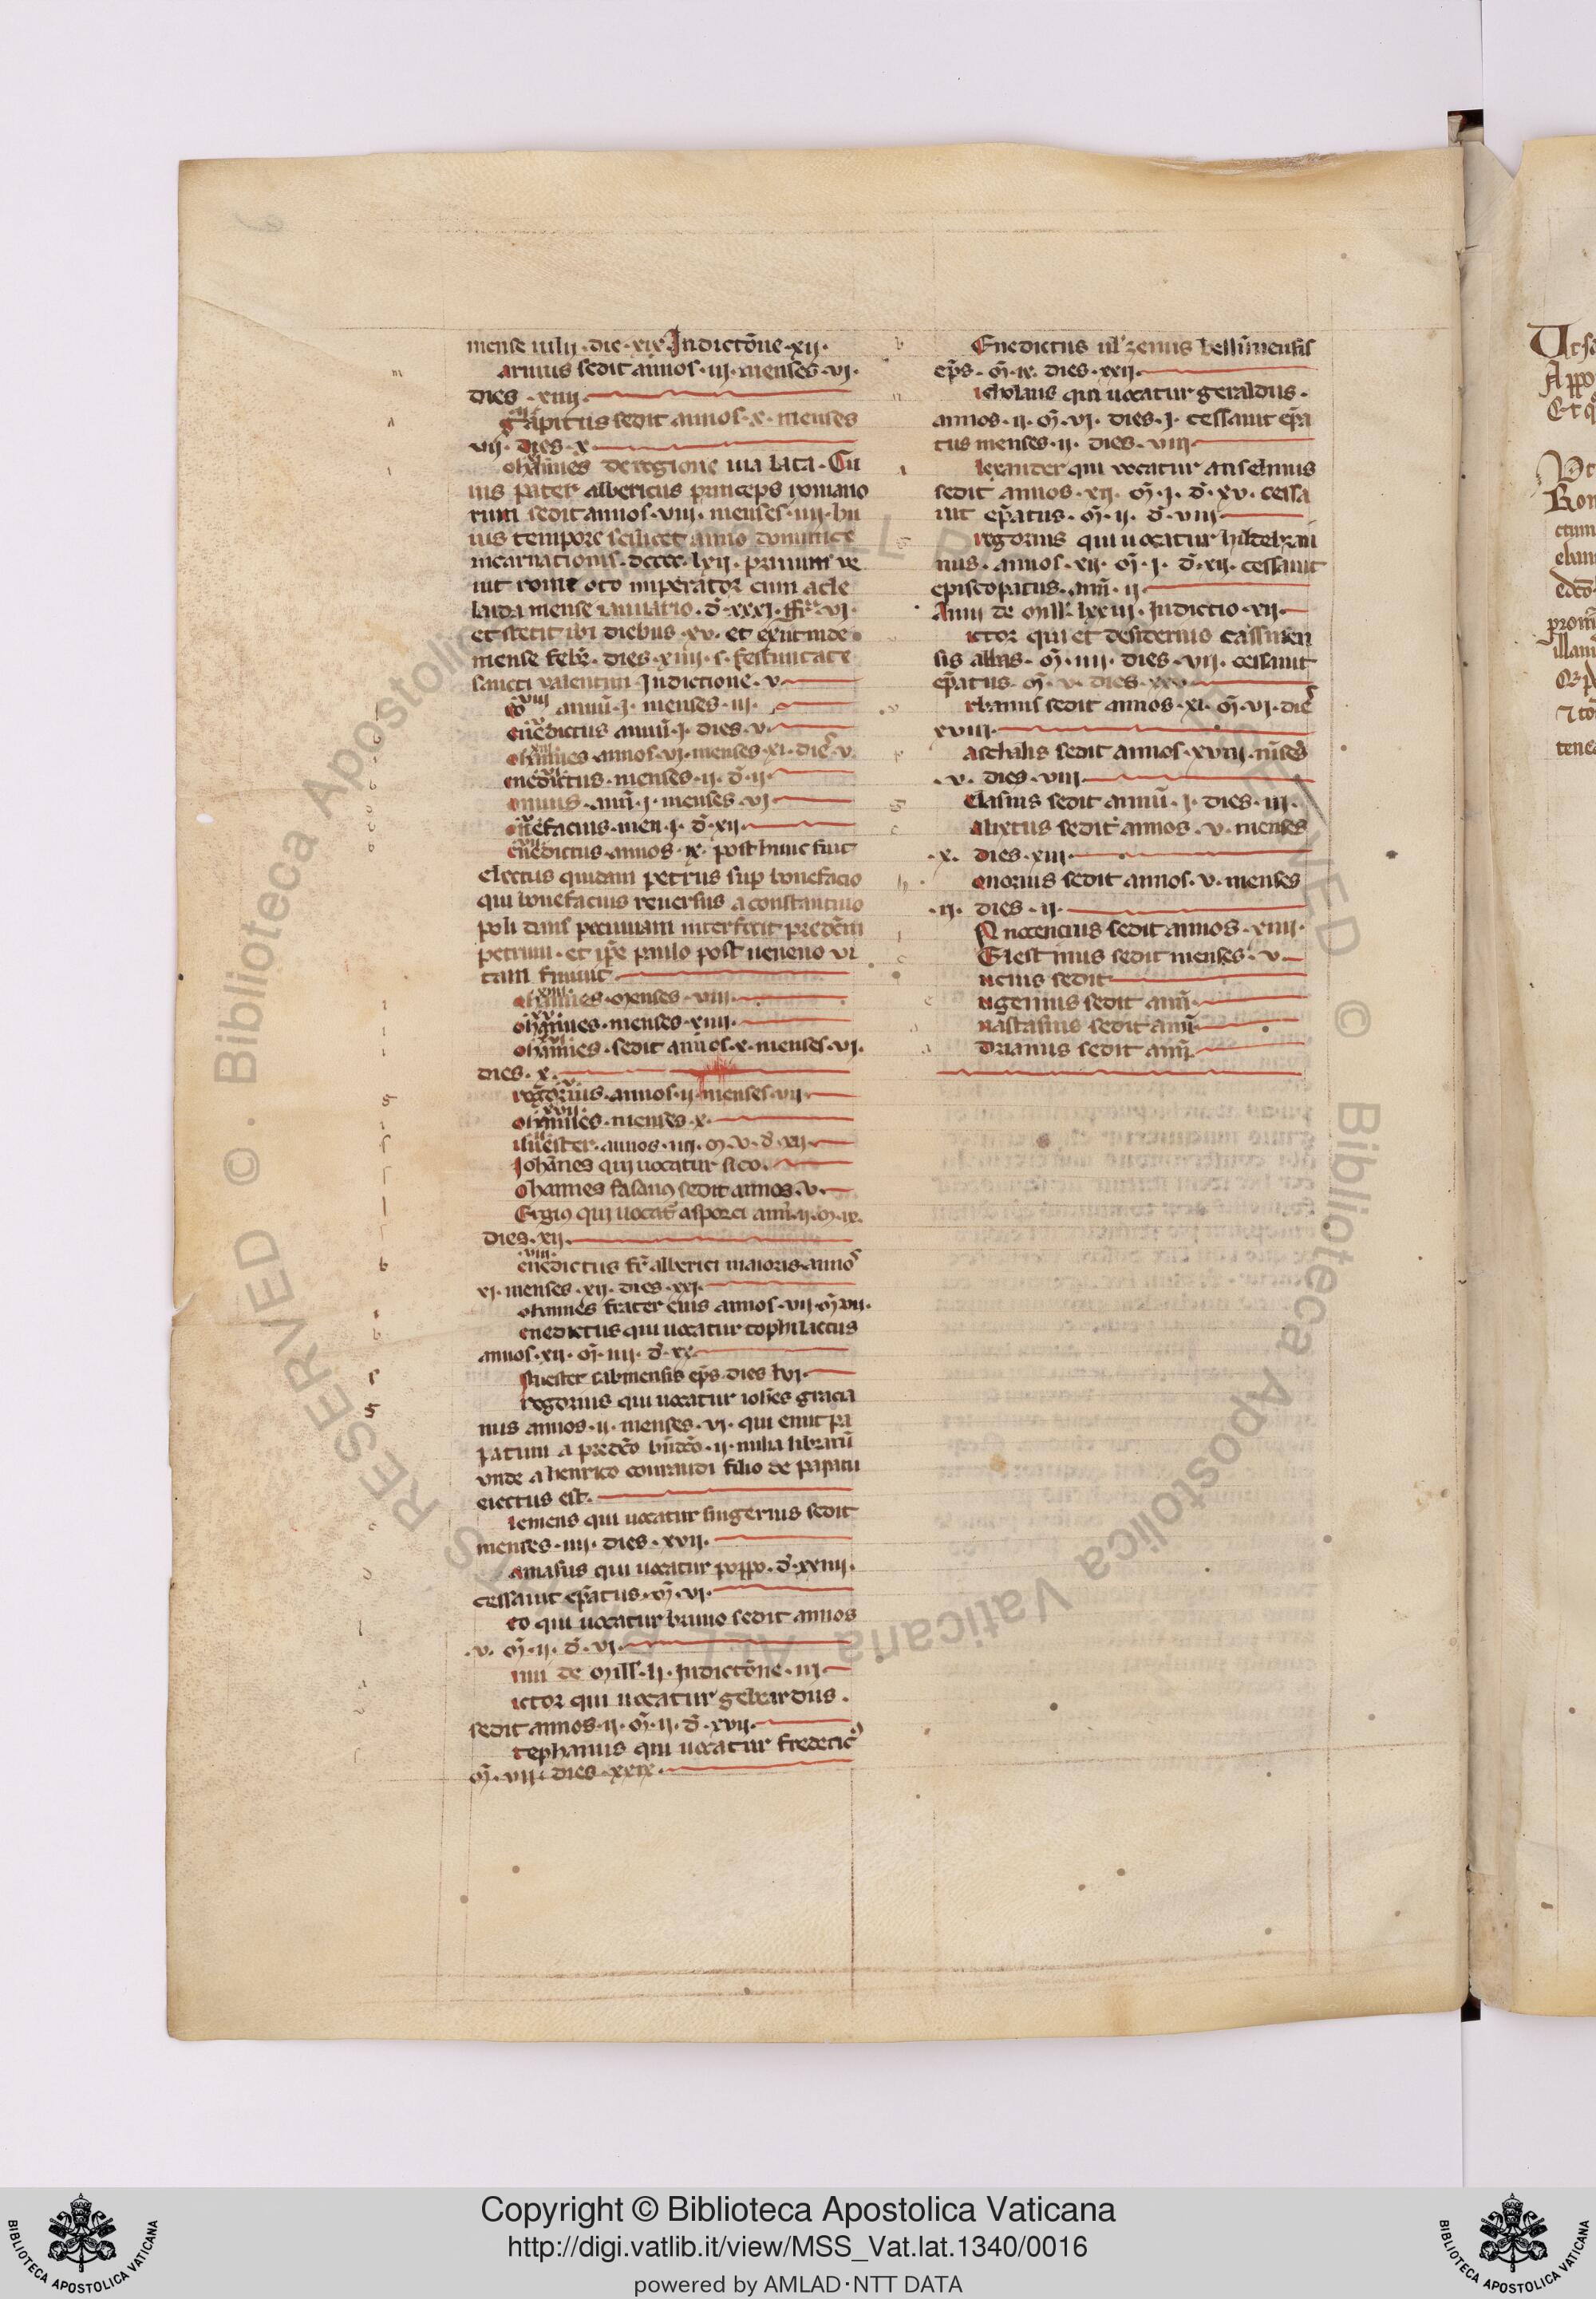 mense iulii · die · xix · Indictōne · xii ·
arinus sedit annos · iii · menses · vi ·
dies · xiiii ·
gapitus sedit annos · x · menses
vii · dies · x
ohannes de regione uia lata · Cu
ius pater albericus princeps romano
rum sedit annos · viii · menses · iiii · hu
ius tempore scilicet anno dominice
incarnationis · dcccc · lxii · primum ue
nit rome oto imperator cum adle
laida mense ianuario · d̄ · xxxi ·
et stetit ibi diebus · xv · et exiit inde
mense febr̄ · dies · xiiii · s · festiuitate
sancti valentini Indictione · v
eo annū · i · menses · iii ·
enedictus annū · i · dies · v ·
ohannes annos · vi · menses · xi · dies · v ·
enedictus · menses · ii · d̄ · ii
onnus · ann̄ · i · menses · vi
onefacius · men · i · d̄ · xii
enedictus · annos · ix · post hunc fuit
electus quidam petrus sup bonefacio
qui bonefacius reuersus a constantino
poli dans pecuniam interfecit predc̄m
petrum · et ip̄e paulo post ueneno vi
tam finiuit
ohannes · menses · viii
ohannes · menses · xiiii ·
ohannes · sedit annos · x · menses · vi ·
dies · x ·
regorius · annos · ii · menses · vii
ohannes · menses · x ·
iluester · annos · iiii · m̄ · v · d̄ · xii
Johānes qui uocatur sico ·
ohannes fasanꝯ sedit annos · v ·
Ergiꝯ qui uocat̄ asporci ann̄ · ii · m̄ · ix ·
dies · xii ·
· viii ·
enedictus fr̄ alberici maioris annos
xi · menses · xii · dies · xxi ·
ohannes frater eius annos · vii · m̄ · vii ·
enedictus qui uocatur tophilactus
annos · xii · m̄ · iiii · d̄ · xx
iluester sabinensis ep̄s dies lvi ·
regorius qui uocatur ioh̄es gracia
nus annos · ii · menses · vi · qui emit pa
patum a predc̄o bn̄dc̄o · ii · milia librarū
vnde a henrico conraudi filio de papatu
eiectus est ·
lemens qui uocatur singerius sedit
menses · iiii · dies · xvii ·
amasus qui uocatur poppo · d̄ · xxiiii ·
cessauit ep̄atus · m̄ · vi ·
eo qui uocatur bruno sedit annos
· v · m̄ · ii · d̄ · vi ·
nni de mill · li · Indictōne · iii
ictor qui uocatur gebeardus ·
sedit annos · ii · m̄ · ii · d̄ · xvii ·
tephanus qui uocatur frederic̄
m̄ · vii · dies · xxix ·
Enedictus
ep̄s · m̄ · ix · dies · xxii ·
icholaus qui uocatur geraldus ·
annos · ii · m̄ · vi · dies · i · cessauit ep̄a
tus menses · ii · dies · viii
lexander qui vocatur anselmus
sedit annos · xii · m̄ · i · d̄ · xv · cessa
uit ep̄atus · m̄ · ii · d̄ · viii
regorius qui uocatur hildebran
nus · annos · xii · m̄ · i · d̄ · xii · cessauit
episcopatus · ann̄ · ii
Anni de mill · lxxiii · Indictio · xii
ictor qui et desiderius cassinen
sis abbas · m̄ · iiii · dies · vii · cessauit
ep̄atus · m̄ · v · dies · xxv
rbanus sedit annos · xi · m̄ · vi · dies
xviii ·
aschalis sedit annos · xviii · mēses
· v · dies · viii
elasius sedit annū · i · dies · iii ·
alixtus sedit annos · v · menses
· x · dies · xiii ·
onorius sedit annos · v · menses
· ii · dies · ii ·
nnocencius sedit annos · xiiii ·
Elestinus sedit menses · v
ucius sedit
ugenius sedit ann̄
nastasius sedit ann̄
drianus sedit ann̄
Copyright © Biblioteca Apostolica Vaticana
http://digi.vatlib.it/view/MSS_Vat.lat.1340/0016
powered by AMLAD·NTT DATA